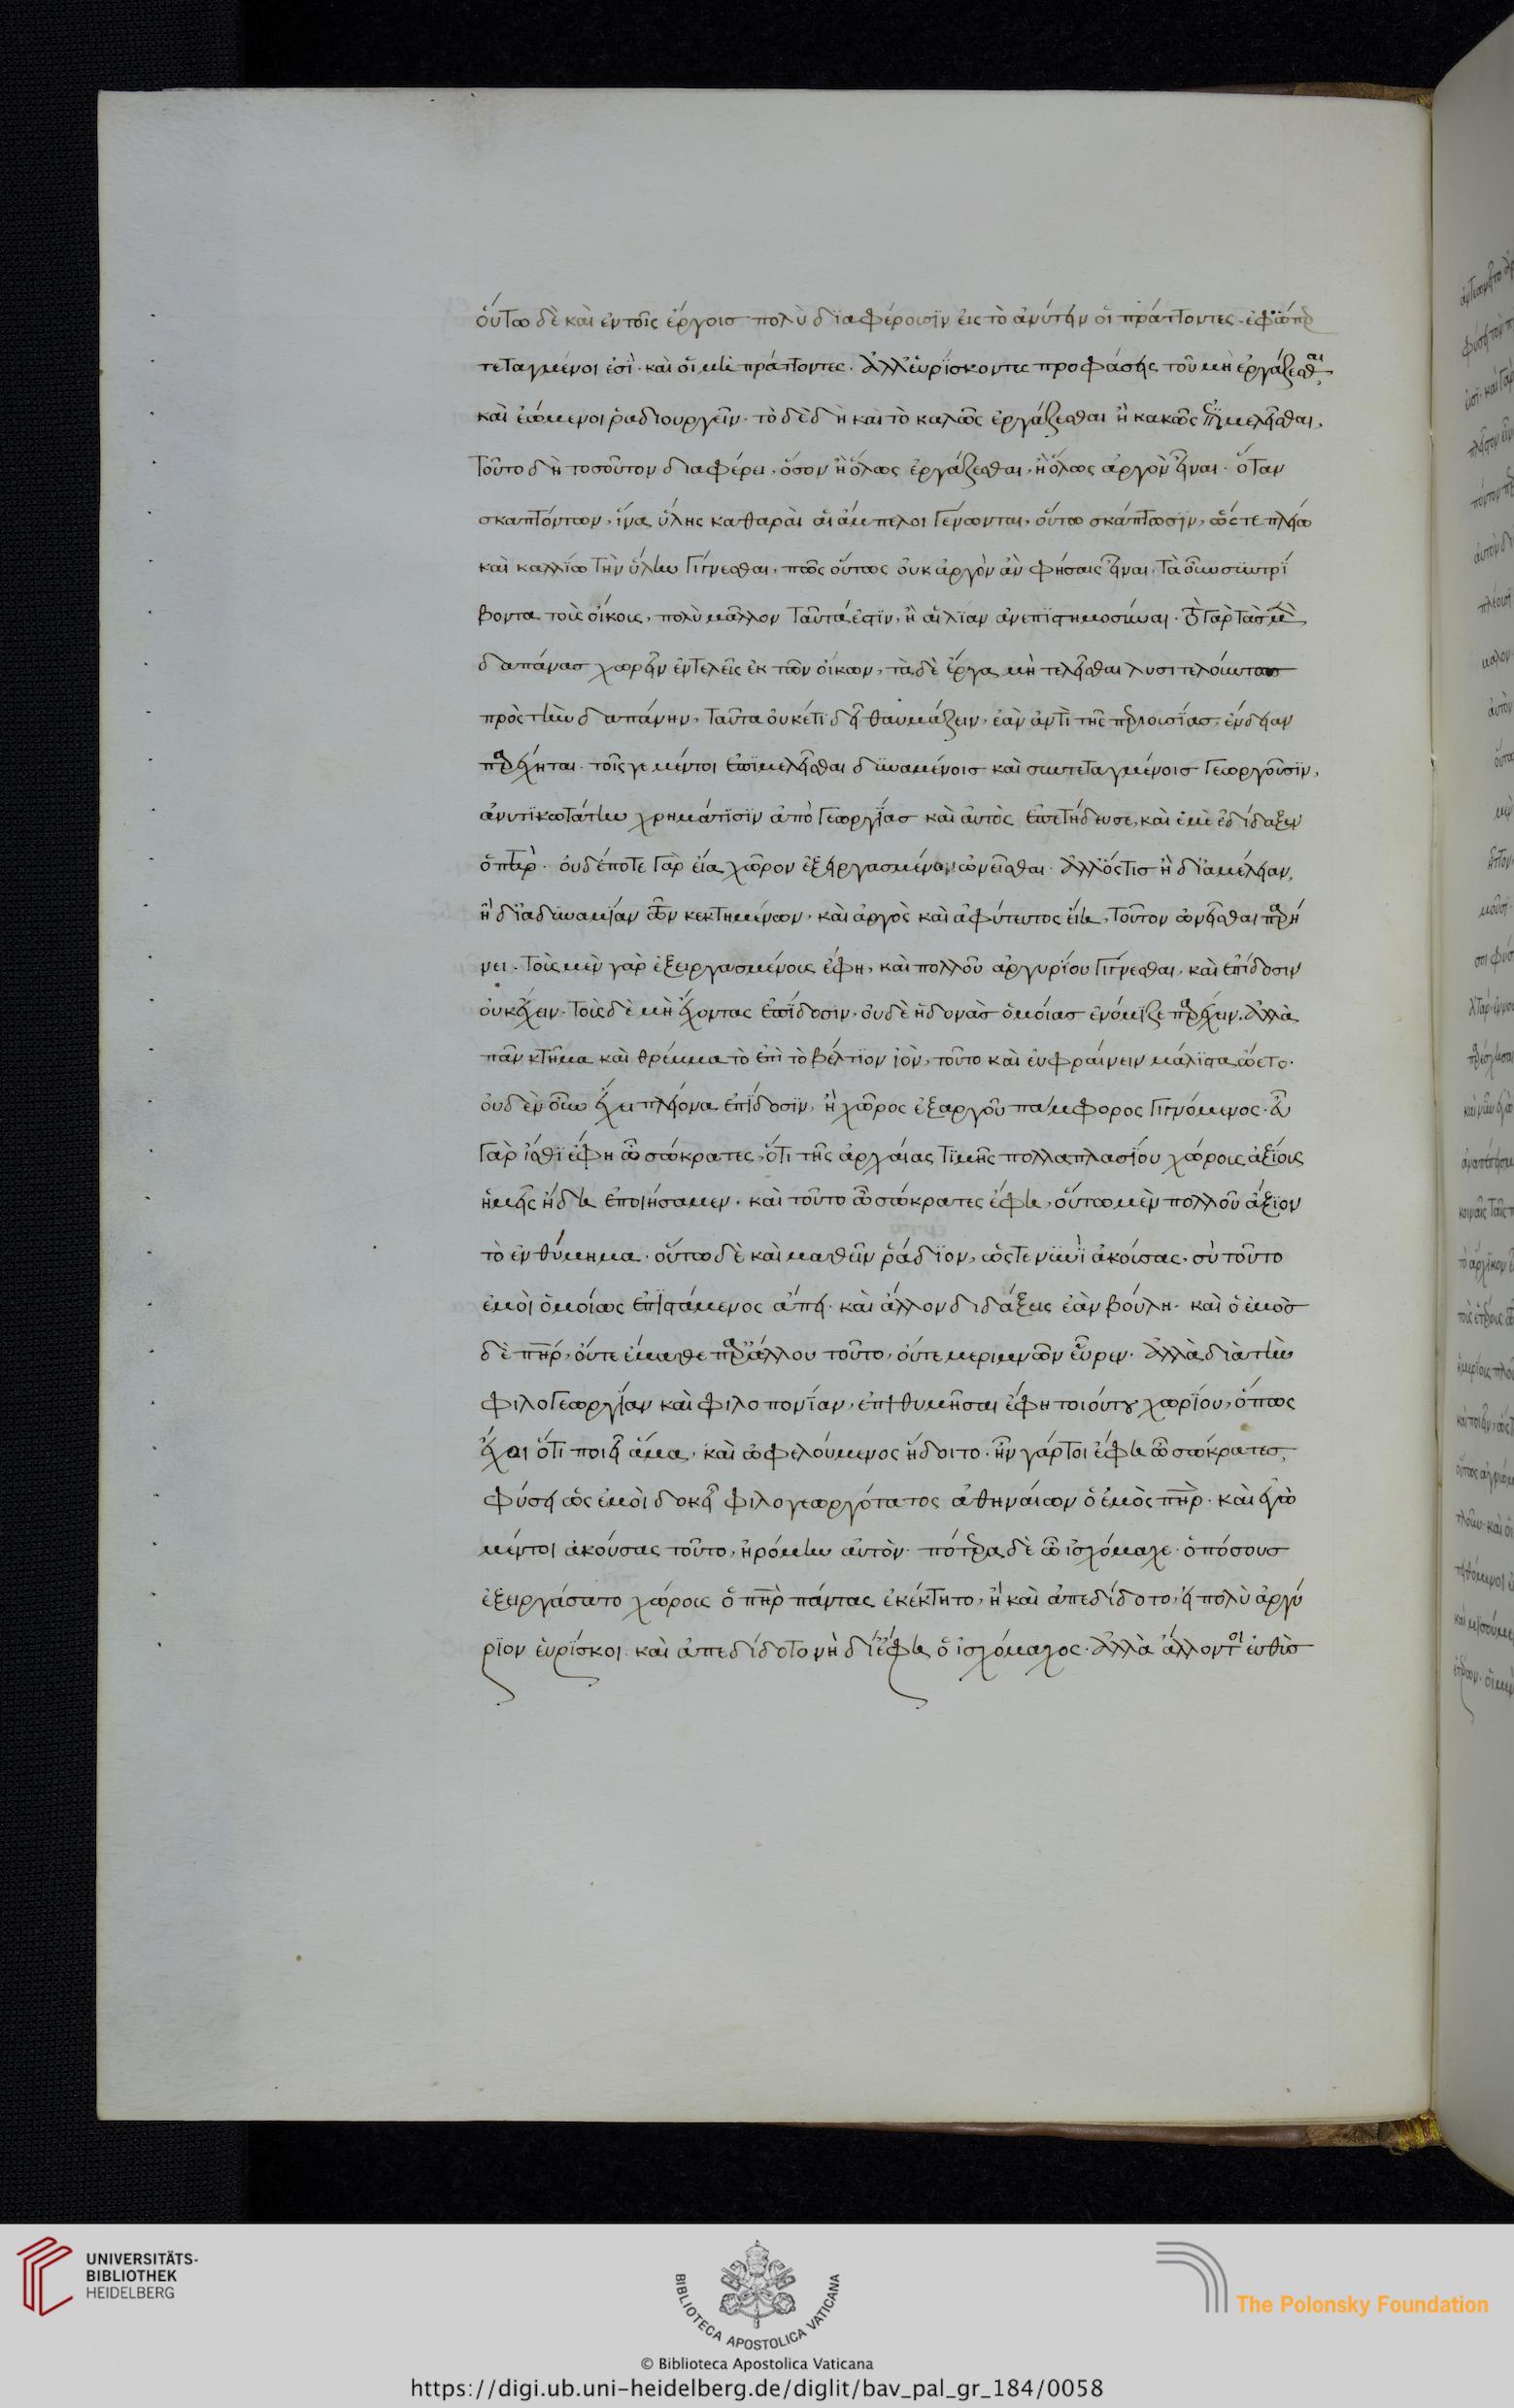 ὁύτω δὲ καὶ ἐν τοῖς ἔργοισ πολὺ διαφέρουσϊν εἰς τὸ ἀνύτην οἱ πράττοντες ἐφ' ὧπερ
τεταγμένοι ἐσὶ· καὶ οἱ μὴ πράττοντες· ἀλλ' ἑυρίσκοντες προφάσης τοῦ μὴ ἐργάζεσθαι,
καὶ ἐώμενοι ῥαδιουργεῖν· τὸ δὲ δὴ καὶ τὸ καλῶς ἐργάζεσθαι ἢ κακῶς ἐπιμελῆσθαι,
τοῦτο δὴ τοσοῦτον διαφέρει, ὅσον ἢ ὅλως ἐργάζεσθαι, ἢ ὅλως ἀργὸν εἶναι· ὅταν
σκαπτόντων, ἵνα ὕλης καθαραὶ αἱ ἄμπελοι γένωνται, οὕτω σκάπτωσϊν, ὥστε πλείω
καὶ καλλίω τὴν ὕλην γίγνεσθαι, πῶς οὕτως οὐκ ἀργὸν ἂν φήσαις εἶναι· τὰ οὖν συντρί
βοντα τοὺς οἴκους, πολὺ μᾶλλον ταῦτά ἐστϊν, ἢ αἱ λίαν ἀνεπιστημοσύναι· τὸ γὰρ τὰσ μὲν
δαπάνασ χωρεῖν ἐντελεῖς ἐκ τῶν οἴκων, τὰ δὲ ἔργα μὴ τελεῖσθαι λυσιτελούντωσ
πρὸς τὴν δαπάνην, ταῦτα οὐκέτι δεῖ θαυμάζειν, ἐὰν ἀντὶ τῆς περιουσίασ, ἔνδειαν
παρέχηται· τοῖς γε μέντοι ἐπιμελεῖσθαι δυναμένοισ καὶ συντεταγμένοισ γεωργοῦσϊν,
ἀνυτικωτάτην χρημάτισϊν ἀπὸ γεωργίασ καὶ αὐτὸς ἐπετήδευσε, καὶ ἐμὲ ἐδίδαξεν
ὁ πατήρ· οὐδέποτε γὰρ εἴα χῶρον ἐξειργασμένον ὠνεῖσθαι· ἀλλ' ὅστισ ἢ δι' ἀμέλειαν,
ἢ δι' ἀδυναμίαν τῶν κεκτημένων, καὶ ἀργὸς καὶ ἀφύτευτος εἴη, τοῦτον ὠνεῖσθαι παρή
νει· τοὺς μὲν γὰρ ἐξειργασμένους ἔφη, καὶ πολλοῦ ἀργυρίου γίγνεσθαι, καὶ ἐπίδοσιν
οὐκ ἔχειν· τοὺς δὲ μὴ ἔχοντας ἐπίδοσιν, οὐδὲ ἡδονὰσ ὁμοίασ ἐνόμιζε παρέχειν. ἀλλὰ
πᾶν κτῆμα καὶ θρέμμα τὸ ἐπὶ τὸ βέλτιον ἰὸν, τοῦτο καὶ εὐφραίνειν μάλιστα ᾤετο·
οὐδὲν οὖν ἔχει πλείονα ἐπίδοσϊν, ἢ χῶρος ἐξ ἀργοῦ πάμφορος γιγνόμενος· εὖ
γὰρ ἴσθι ἔφη ὦ σώκρατες, ὅτι τῆς ἀρχαίας τϊμῆς πολλαπλασίου χώρους ἀξίους
ἡμεῖς ἤδη ἐποιήσαμεν· καὶ τοῦτο ὦ σώκρατες ἔφη, οὕτω μὲν πολλοῦ ἄξιον
τὸ ἐνθύμημα· οὕτω δὲ καὶ μαθεῖν ῥάδϊον, ὥστε νυνὶ ἀκούσας, σὺ τοῦτο
ἐμοὶ ὁμοίως ἐπιστάμενος ἄπει· καὶ ἄλλον διδάξεις ἐὰν βούλη· καὶ ὁ ἐμὸσ
δὲ πηρ, οὔτε ἔμαθε παρ' ἄλλου τοῦτο, οὔτε μεριμνῶν εὗρεν· ἀλλὰ διὰ τὴν
φιλογεωργίαν καὶ φιλοπονίαν, ἐπιθυμῆσαι ἔφη τοιούτου χωρίου, ὅπως
ἔχοι ὅτι ποιεῖ ἅμα, καὶ ὠφελούμενος ἥδοιτο· ἦν γάρ τοι ἔφη ὦ σώκρατεσ,
φύσει ὡς ἐμοὶ δοκεῖ φιλογεωργότατος ἀθηναίων ὁ ἐμὸς πηρ· καὶ ἐγὼ
μέντοι ἀκούσας τοῦτο, ἠρόμην αὐτὸν· πότερα δὲ ὦ ἰσχόμαχε· ὁπόσουσ
ἐξειργάσατο χώρους ὁ πηρ πάντας ἐκέκτητο, ἢ καὶ ἀπεδίδοτο, εἰ πολὺ ἀργύ
ρϊον εὑρίσκοι· καὶ ἀπεδίδοτο νὴ δί' ἔφη ὁ ἰσχόμαχος· ἀλλὰ ἄλλον τοι εὐθὺσ
UNIVERSITÄTS-
BIBLIOTHEK
HEIDELBERG
BIBLIOTECA APOSTOLICA VATICANA
The Polonsky Foundation
© Biblioteca Apostolica Vaticana
https://digi.ub.uni-heidelberg.de/diglit/bav_pal_gr_184/0058